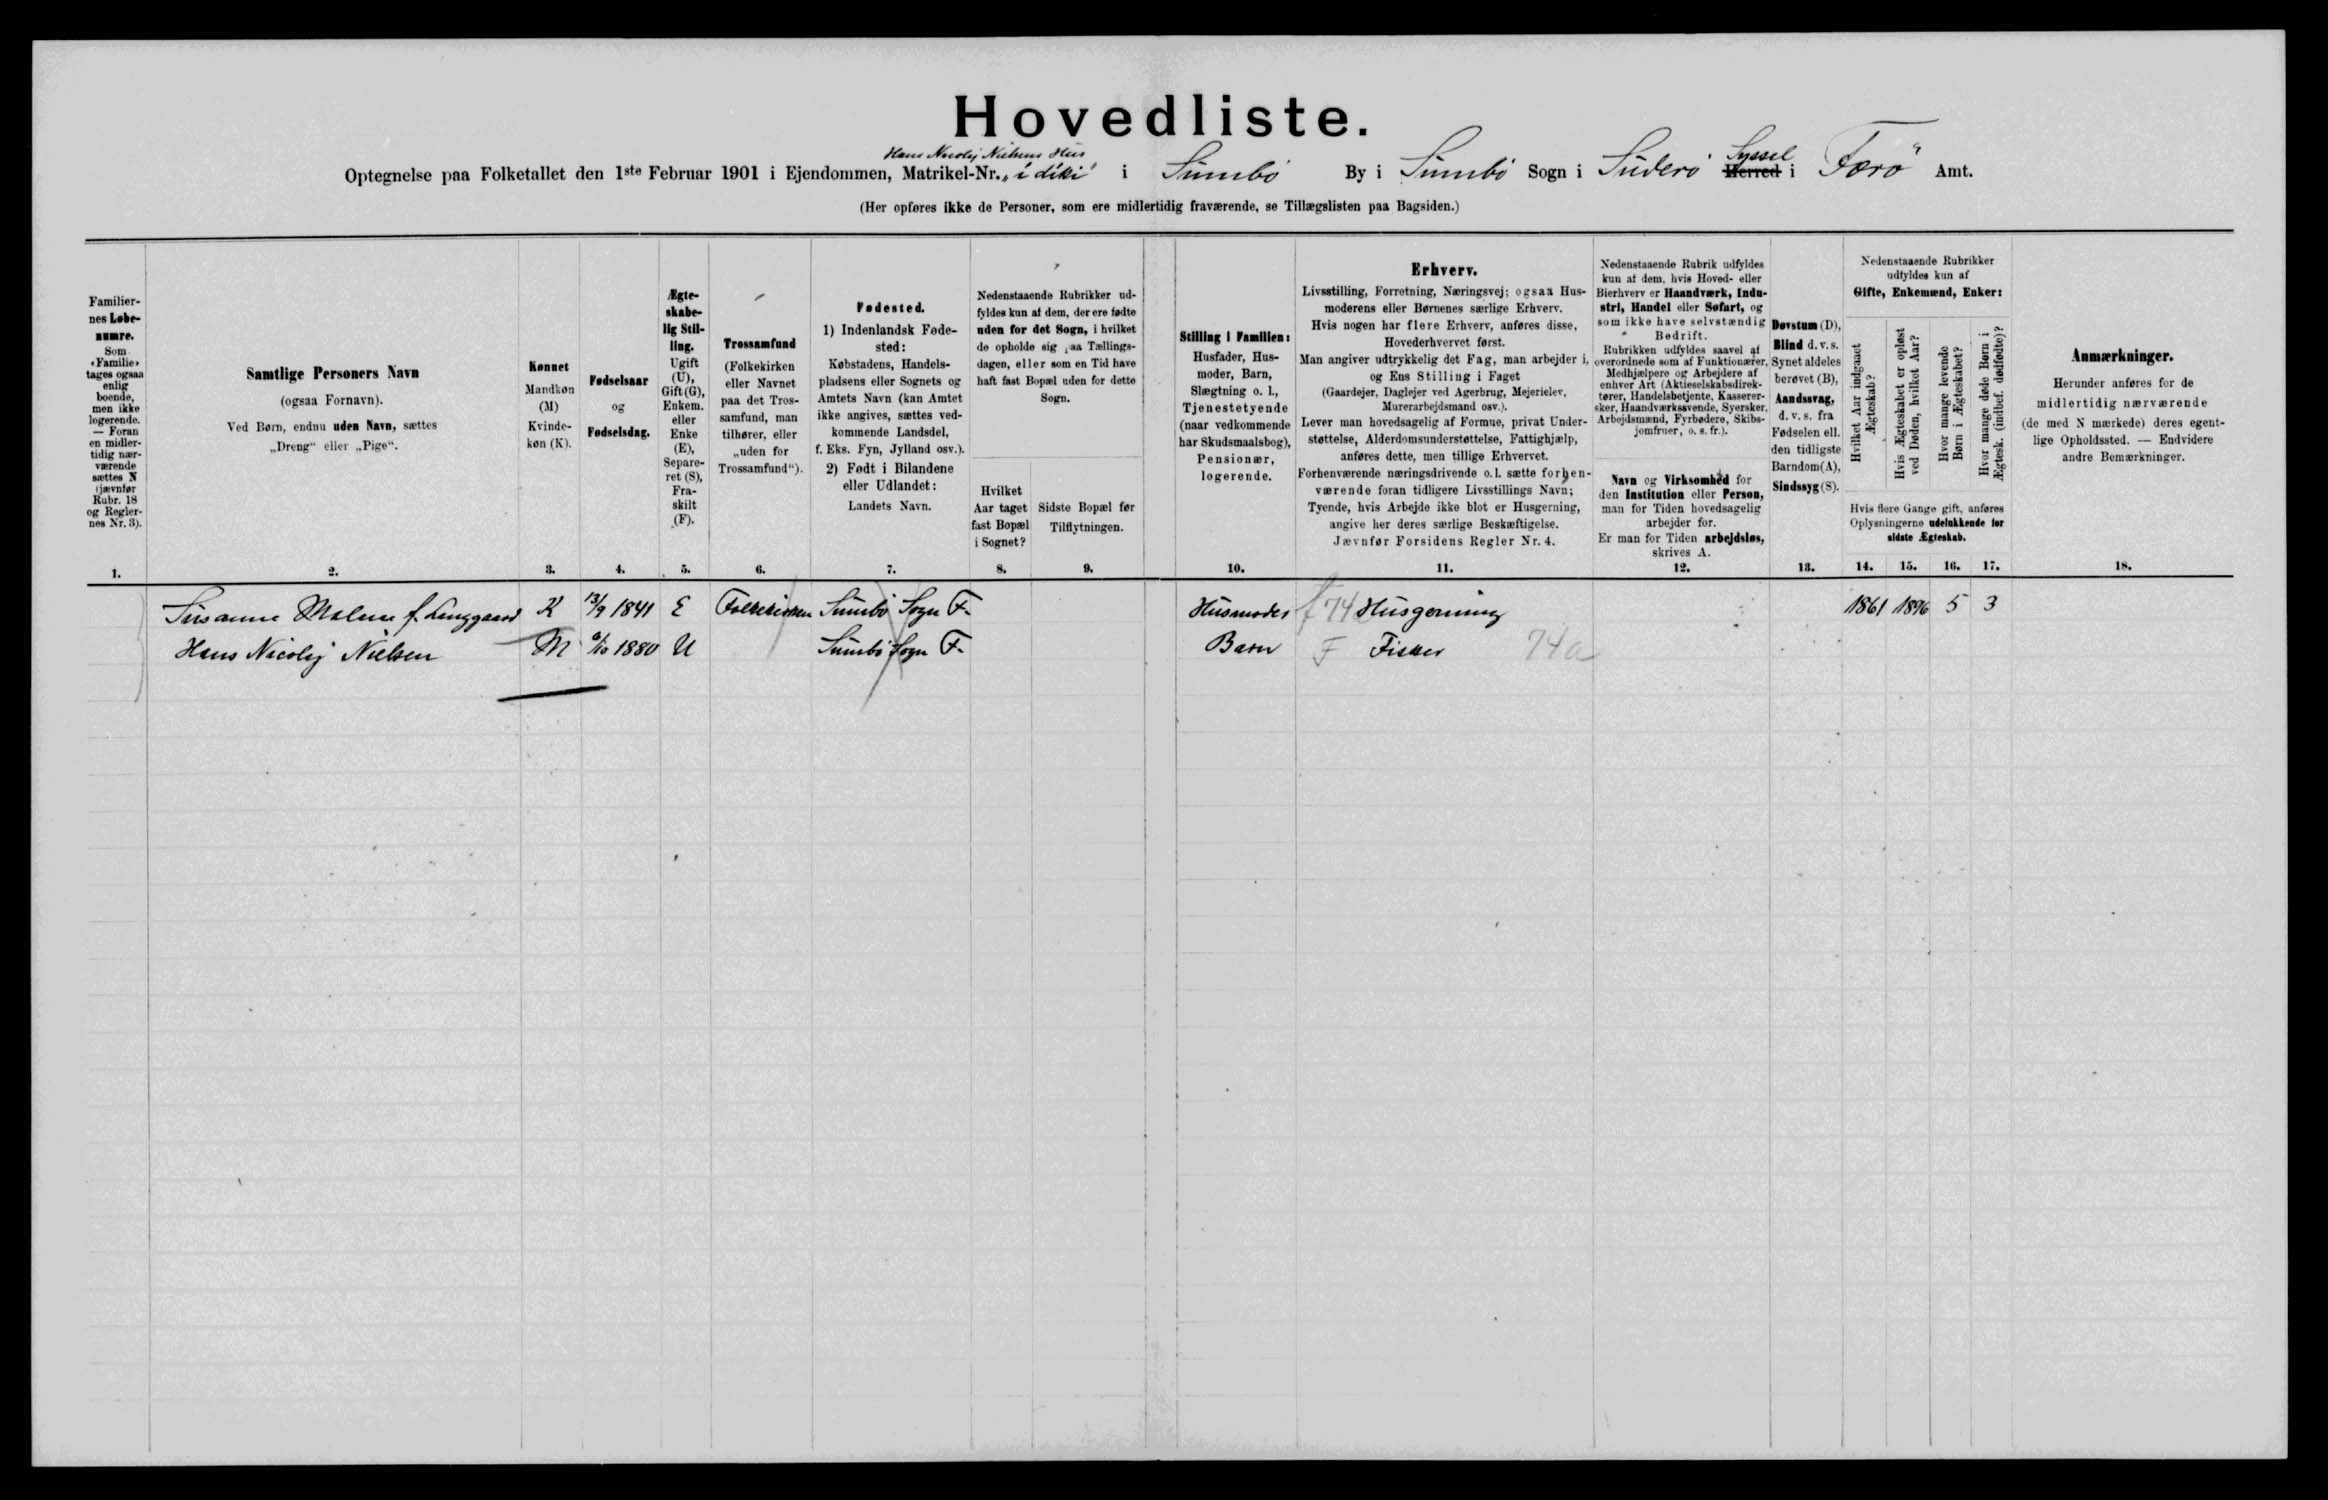 Hovedliste.
Hans Nicolij Nielsens Hus
Optegnelse paa Folketallet den 1ste Februar 1901 i Ejendommen, Matrikel-Nr. „i diki" i Sumbö By i Sumbö Sogn i Süderö Syssel Herred i Færö Amt.
(Her opføres ikke de Personer, som ere midlertidig fraværende, se Tillægslisten paa Bagsiden.)
Familier-
nes Løbe-
numre.
Som
«Familie»
tages ogsaa
enlig
boende,
men ikke
logerende.
— Foran
en midler-
tidig nær-
værende
sættes N
(jævnfør
Rubr. 18
og Regler-
nes Nr. 3).
1.
Samtlige Personers Navn
(ogsaa Fornavn).
Ved Børn, endnu uden Navn, sættes
„Dreng" eller „Pige".
2.
Kønnet
Mandkøn
(M)
Kvinde-
køn (K).
3.
Fødselsaar
og
Fødselsdag.
4.
Ægte-
skabe-
lig Stil-
ling.
Ugift
(U),
Gift (G),
Enkem.
eller
Enke
(E),
Separe-
ret (S),
Fra-
skilt
(F).
5.
Trossamfund
(Folkekirken
eller Navnet
paa det Tros-
samfund, man
tilhører, eller
„uden for
Trossamfund").
6.
Fødested.
1) Indenlandsk Føde-
sted:
Købstadens, Handels-
pladsens eller Sognets og
Amtets Navn (kan Amtet
ikke angives, sættes ved-
kommende Landsdel,
f. Eks. Fyn, Jylland osv.).
2) Født i Bilandene
eller Udlandet:
Landets Navn.
7.
Nedenstaaende Rubrikker ud-
fyldes kun af dem, der ere fødte
uden for det Sogn, i hvilket
de opholde sig paa Tællings-
dagen, eller som en Tid have
haft fast Bopæl uden for dette
Sogn.
Hvilket
Aar taget
fast Bopæl
i Sognet?
8.
Sidste Bopæl før
Tilflytningen.
9.
Stilling i Familien:
Husfader, Hus-
moder, Barn,
Slægtning o. l.,
Tjenestetyende
(naar vedkommende
har Skudsmaalsbog),
Pensionær,
logerende.
10.
Erhverv.
Livsstilling, Forretning, Næringsvej; ogsaa Hus-
moderens eller Børnenes særlige Erhverv.
Hvis nogen har flere Erhverv, anføres disse,
Hovederhvervet først.
Man angiver udtrykkelig det Fag, man arbejder i,
og Ens Stilling i Faget
(Gaardejer, Daglejer ved Agerbrug, Mejerielev,
Murerarbejdsmand osv.).
Lever man hovedsagelig af Formue, privat Under-
støttelse, Alderdomsunderstøttelse, Fattighjælp,
anføres dette, men tillige Erhvervet.
Forhenværende næringsdrivende o. l. sætte forhen-
værende foran tidligere Livsstillings Navn;
Tyende, hvis Arbejde ikke blot er Husgerning,
angive her deres særlige Beskæftigelse.
Jævnfør Forsidens Regler Nr. 4.
11.
Nedenstaaende Rubrik udfyldes
kun af dem, hvis Hoved- eller
Bierhverv er Haandværk, Indu-
stri, Handel eller Søfart, og
som ikke have selvstændig
Bedrift.
Rubrikken udfyldes saavel af
overordnede som af Funktionærer,
Medhjælpere og Arbejdere af
enhver Art (Aktieselskabsdirek-
tører, Handelsbetjente, Kasserer-
sker, Haandværkssvende, Syersker,
Arbejdsmænd, Fyrbødere, Skibs-
jomfruer, o. s. fr.).
Navn og Virksomhed for
den Institution eller Person,
man for Tiden hovedsagelig
arbejder for.
Er man for Tiden arbejdsløs,
skrives A.
12.
Døvstum (D),
Blind d. v. s.
Synet aldeles
berøvet (B),
Aandssvag,
d. v. s. fra
Fødselen ell.
den tidligste
Barndom (A),
Sindssyg (S).
13.
Nedenstaaende Rubrikker
udfyldes kun af
Gifte, Enkemænd, Enker:
Hvilket Aar indgaaet
Ægteskab?
Hvis Ægteskabet er opløst
ved Døden, hvilket Aar?
Hvor mange levende
Børn i Ægteskabet?
Hvor mange døde Børn i
Ægtesk. (indbef. dødfødte)?
Hvis flere Gange gift, anføres
Oplysningerne udelukkende for
sidste Ægteskab.
14. 15. 16. 17.
Anmærkninger.
Herunder anføres for de
midlertidig nærværende
(de med N mærkede) deres egent-
lige Opholdssted. — Endvidere
andre Bemærkninger.
18.
Susanne Malene f. Lenggaard K 13/9 1841 E Folkekirken Sumbö Sogn F. Husmoder f 74 Husgerning 1861 1896 5 3
Hans Nicolij Nielsen M 6/10 1880 U Sumbö Sogn F. Barn F Fisker 74a